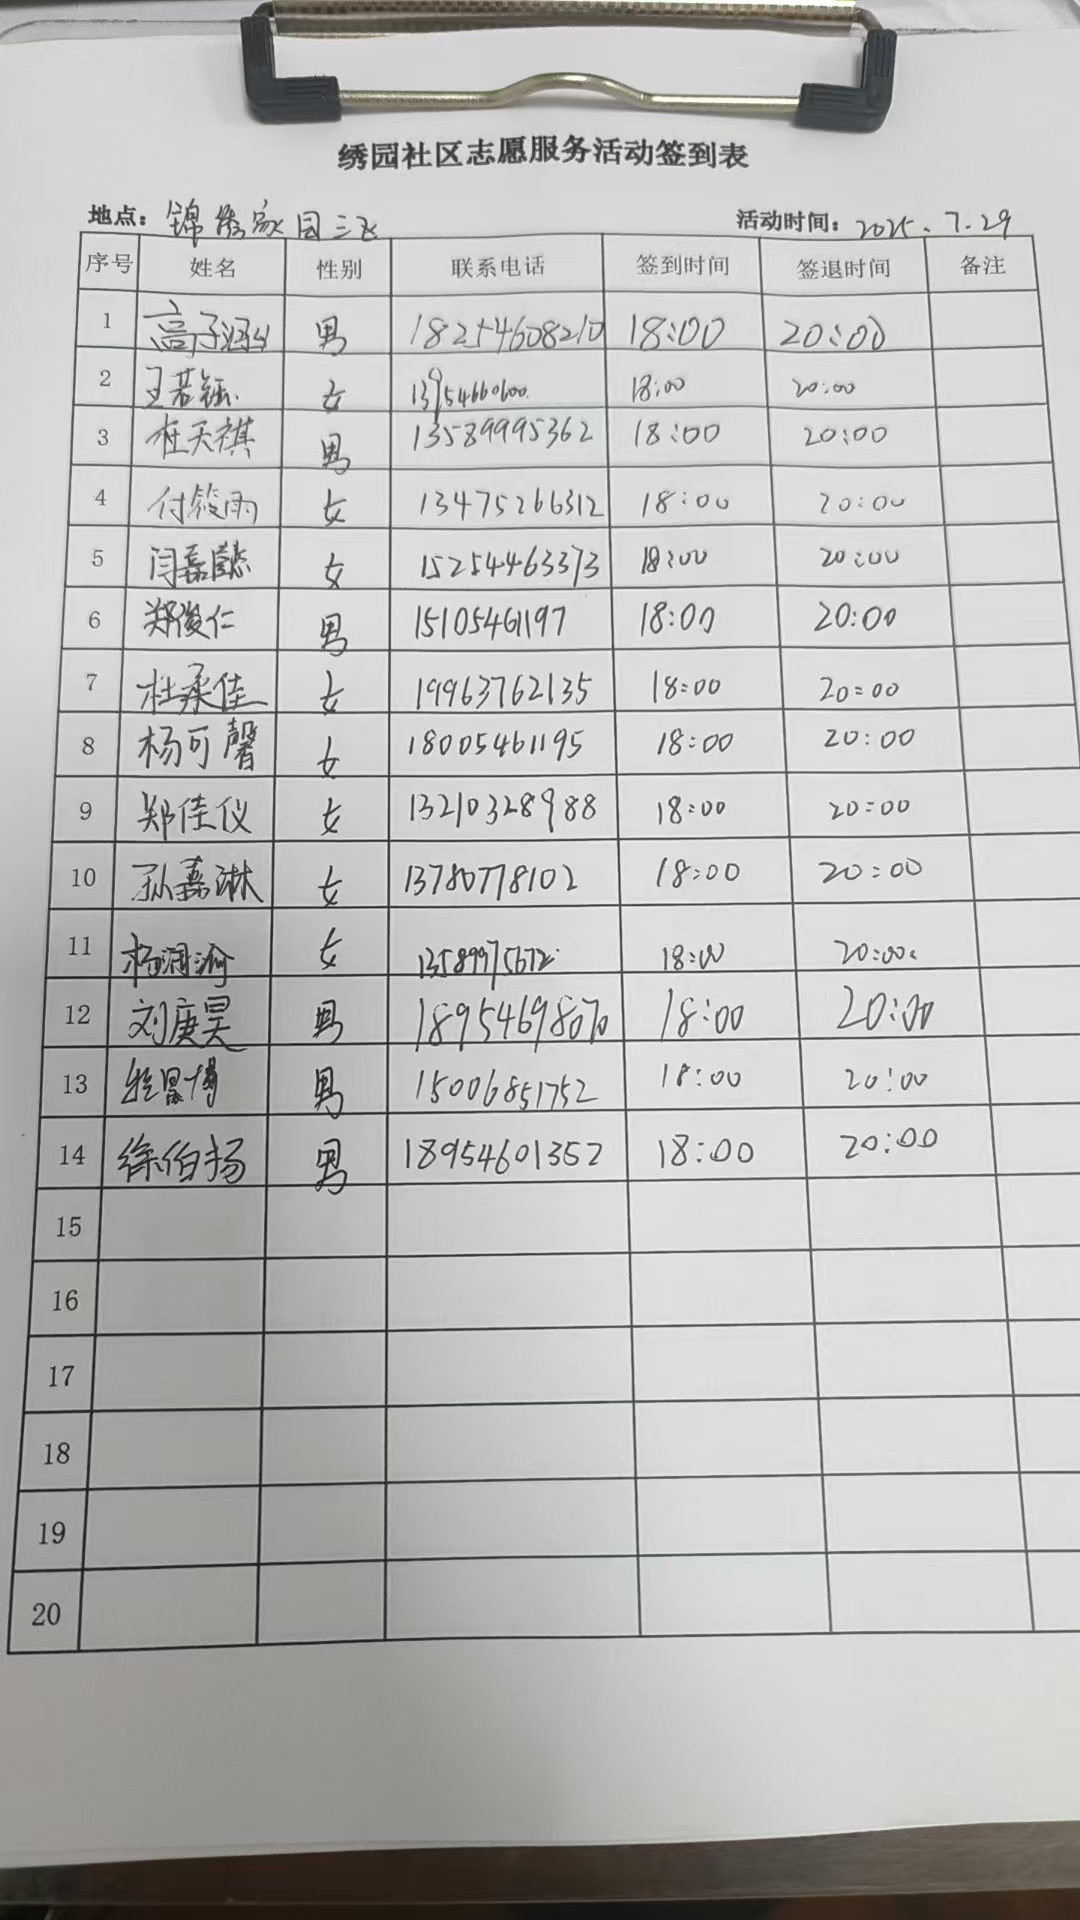 绣园社区志愿服务活动签到表
地点：锦绣家园三区 活动时间：2025.7.29
序号 姓名 性别 联系电话 签到时间 签退时间 备注
1 高子涵 男 18254608210 18:00 20:00
2 王若钰 女 13954660600 18:00 20:00
3 杜天祺 男 13589995362 18:00 20:00
4 付筱雨 女 13475266312 18:00 20:00
5 闫嘉懿 女 15254463373 18:00 20:00
6 郑俊仁 男 15105461197 18:00 20:00
7 杜柔佳 女 19963762135 18:00 20:00
8 杨可馨 女 18005461195 18:00 20:00
9 郑佳仪 女 13210328988 18:00 20:00
10 孙嘉淋 女 13780778102 18:00 20:00
11 杨润渝 女 13589975672 18:00 20:00
12 刘庚昊 男 18954698070 18:00 20:00
13 男 15006851752 18:00 20:00
14 徐伯扬 男 18954601352 18:00 20:00
15
16
17
18
19
20